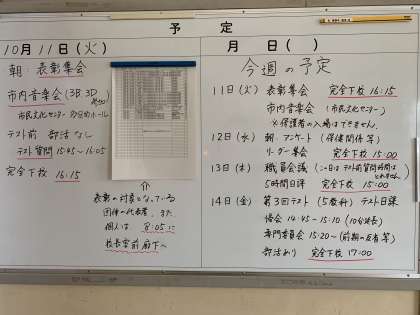 予定
10月11日(火)
朝:表彰集会
市内音楽会(3B 3D 参加)
市民文化センター
テスト前 部活なし
テスト質問 15:45~16:05
完全下校 16:15
表彰の対象となっている
団体の代表者、また
個人は 8:05に
校長室前廊下へ
月 日( )
今週の予定
11日(火) 表彰集会 完全下校 16:15
市内音楽会(市民文化センター)
※保護者の入場はできません。
12日(水) 朝:アンケート(保健関係等)
リーダー集会 完全下校 15:00
13日(木) 職員会議(この日はテスト前質問時間は
とれません)
5時間日課 完全下校 15:00
14日(金) 第3回テスト(5教科) テスト日課
帰会 14:45~15:10(10分延長)
専門委員会 15:20~(前期の反省等)
部活あり 完全下校 17:00